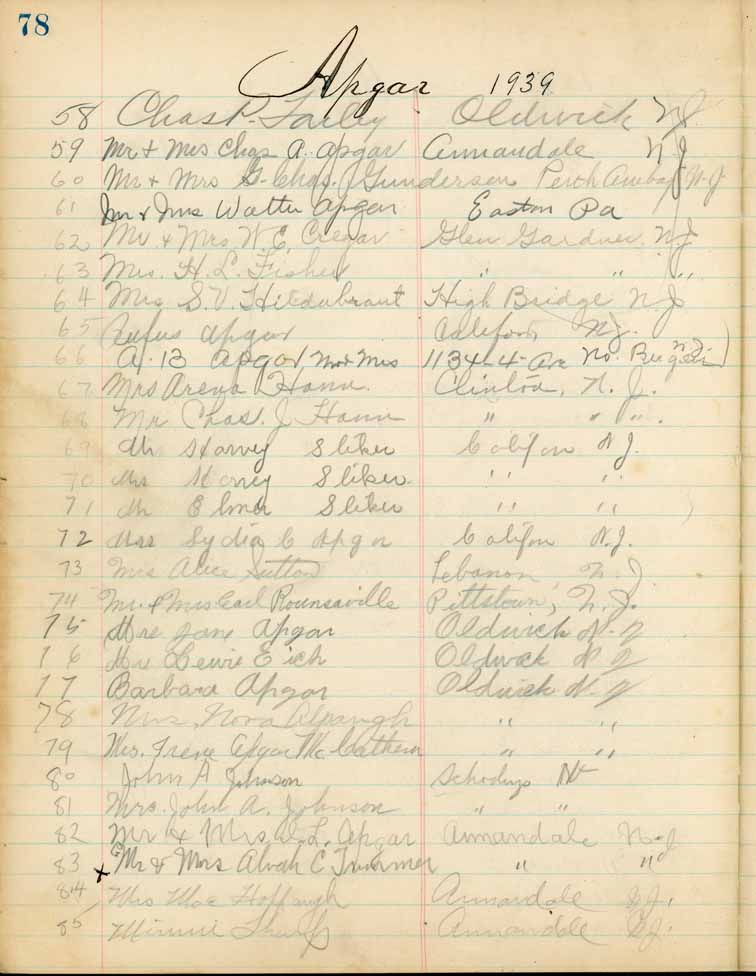 78
Apgar 1939
58 Chas P. Farley Oldwick NJ
59 Mr + Mrs Chas A. Apgar Annandale N J
60 Mr + Mrs G. Chas. Gunderson Perth Amboy N-J
61 Mr & Mrs Walter Apgar Easton Pa
62 Mr. & Mrs W. E. Cregar Glen Gardner. N J
63 Mrs. H. L. Fisher " " "
64 Mrs S. V. Hildabrant High Bridge N J
65 Rufus Apgar Califon N J.
66 A. B Apgar Mr & Mrs 1134-4-Ave No. Bergen N J
67 Mrs Arena Hann. Clinton, N. J.
68 Mr. Chas. J. Hann " " ".
69 Mr Harvey Sliker Califon N J.
70 Mrs Harvey Sliker. " "
71 Mr Elmer Sliker " "
72 Mrs Lydia C Apgar Califon N.J.
73 Mrs Alice Sutton Lebanon, N. J.
74 Mr. & Mrs Earl Rounsaville Pittstown, N. J.
75 Mrs Jane Apgar Oldwick N-J
76 Lewie Eich Oldwick N J
77 Barbara Apgar Oldwick N-J
78 Mrs. Nora Alpaugh " "
79 Mrs. Irene Apgar McCathern " "
80 John A Johnson
81 Mrs. John A. Johnson " "
82 Mr & Mrs. L. Apgar Annandale N-J
83 x Mr & Mrs Alvah C Trimmer " "
84 Mrs Mae Hoffaugh Annandale N J.
85 Minnie Sharp Annandale N J.